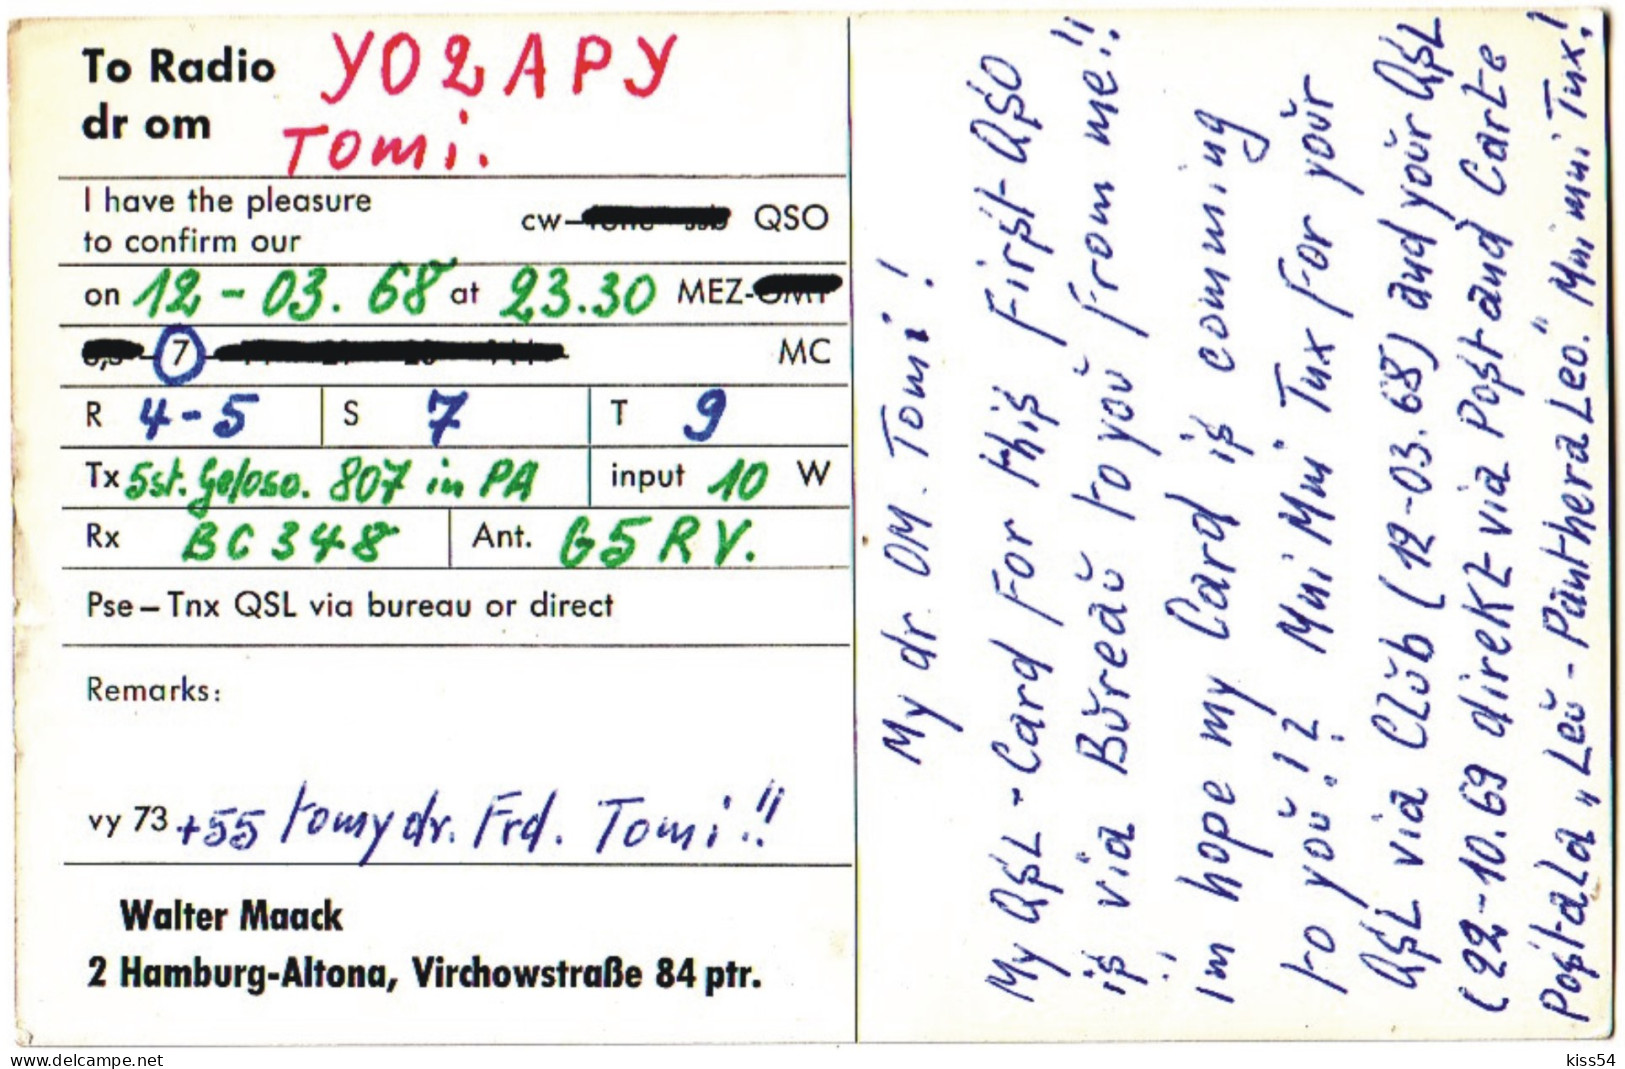 To Radio YO2APY
dr om Tomi.
I have the pleasure
to confirm our cw- fone ssb QSO
on 12-03.68 at 23.30 MEZ-GMT
3,5 7 14 21 28 144 MC
R 4-5 S 7 T 9
Tx 5st. Geloso. 807 in PA input 10 W
Rx BC348 Ant. G5RV.
Pse – Tnx QSL via bureau or direct
Remarks:
vy 73 +55 to my dr. Frd. Tomi!!
Walter Maack
2 Hamburg-Altona, Virchowstraße 84 ptr.
My dr. OM. Tomi!
My QSL-Card For this First QSO
is via Büreaŭ to yoŭ From me!!
im hope my Card is comming
to yoŭ!? Mni Mni Tnx For yoŭr
QSL via Clŭb (12-03.68) and yoŭr QSL
(22-10.69 direkt via Post and Carte
Postala „Leŭ-Panthera Leo." Mni mni Tnx!
delcampe.net
kiss54